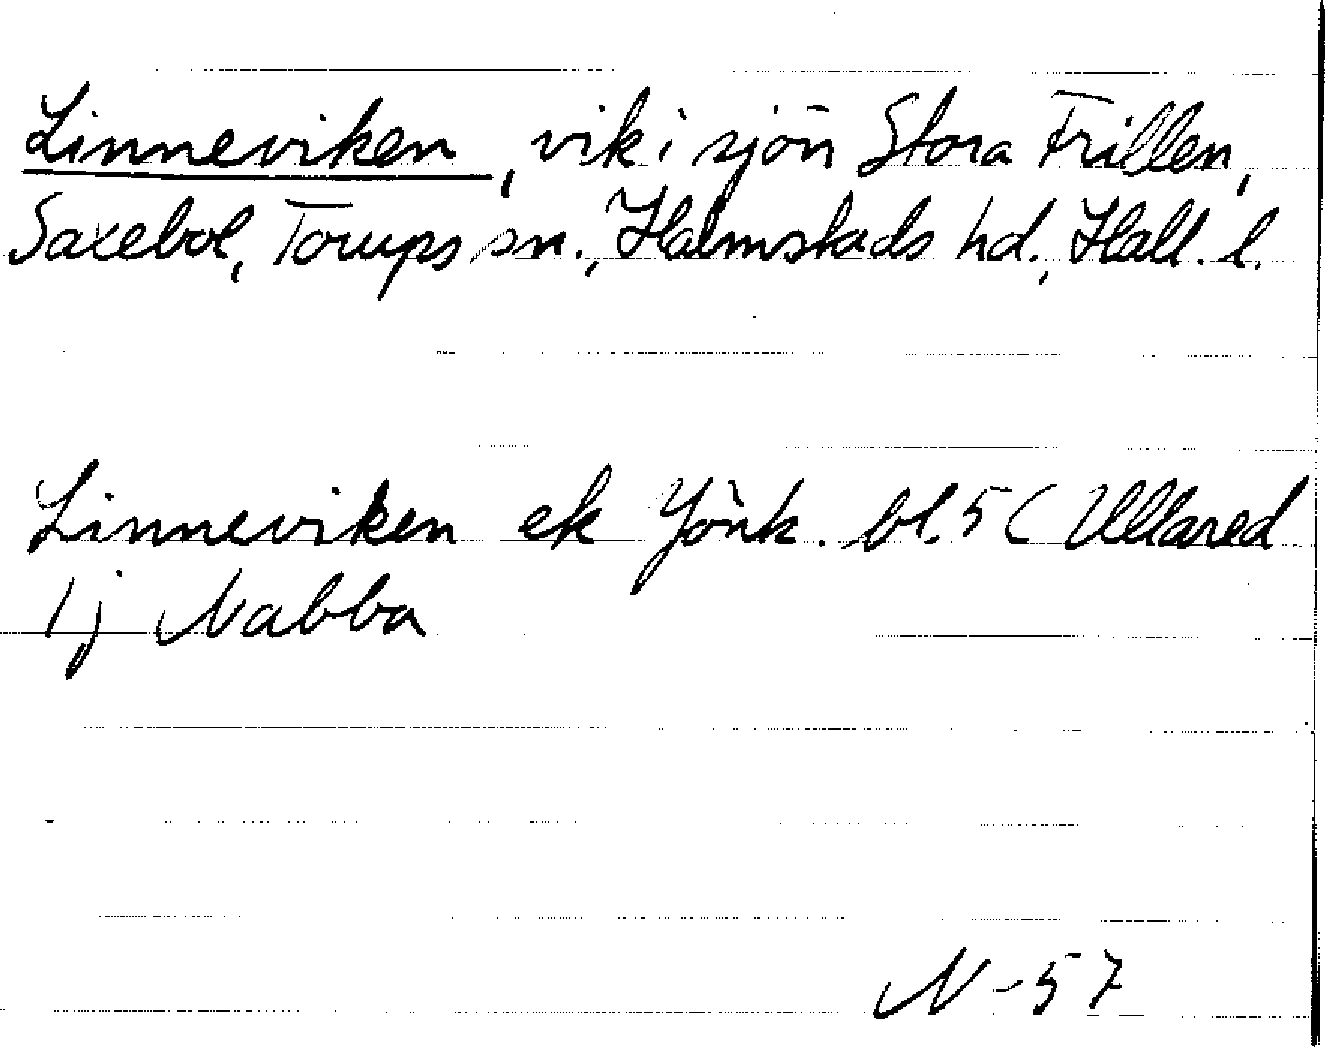 Linneviken, vik i sjön Stora Frillen,
Saxebol, Torups sn., Halmstads hd., Hall. l.
Linneviken ek Jönk. bl. 5 C Ullared
1j Nabba
N-57